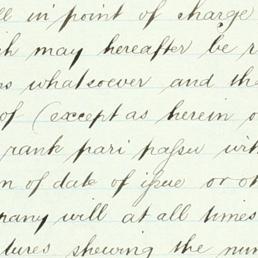 ll in point of charge
ch may hereafter be r
s whatsoever and the
of (except as herein o
rank pari passu with
n of date of issue or ot
pany will at all times
tures shewing the num